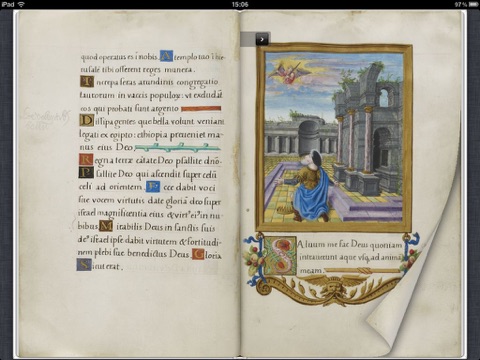 iPad 15:06 97%
quod operatus es i nobis. A templo tuo i hie-
rusalē tibi offerent reges munera.
Increpa feras arundinis congregatio
taurorum in vaccis populorꝫ: vt excludāt
eos qui probati sunt argento
Dissipa gentes que bella volunt: veniant
legati ex egipto: ethiopia preueniet ma-
nus eius Deo.
Regna terrę cātate Deo psallite dnō-
Psallite Deo qui ascendit super celū
celi ad orientem. Ecce dabit voci
sue vocem virtutis date gloriā deo super
israel magnificentia eius & virt' ei' in nu-
bibus. Mirabilis Deus in sanctis suis
de' israel ipse dabit virtutem & fortitudi-
nem plebi sue benedictus Deus. Gloria
Sicut erat.
Saluum me fac Deus quoniam
intrauerunt aque vsq; ad animā
meam.